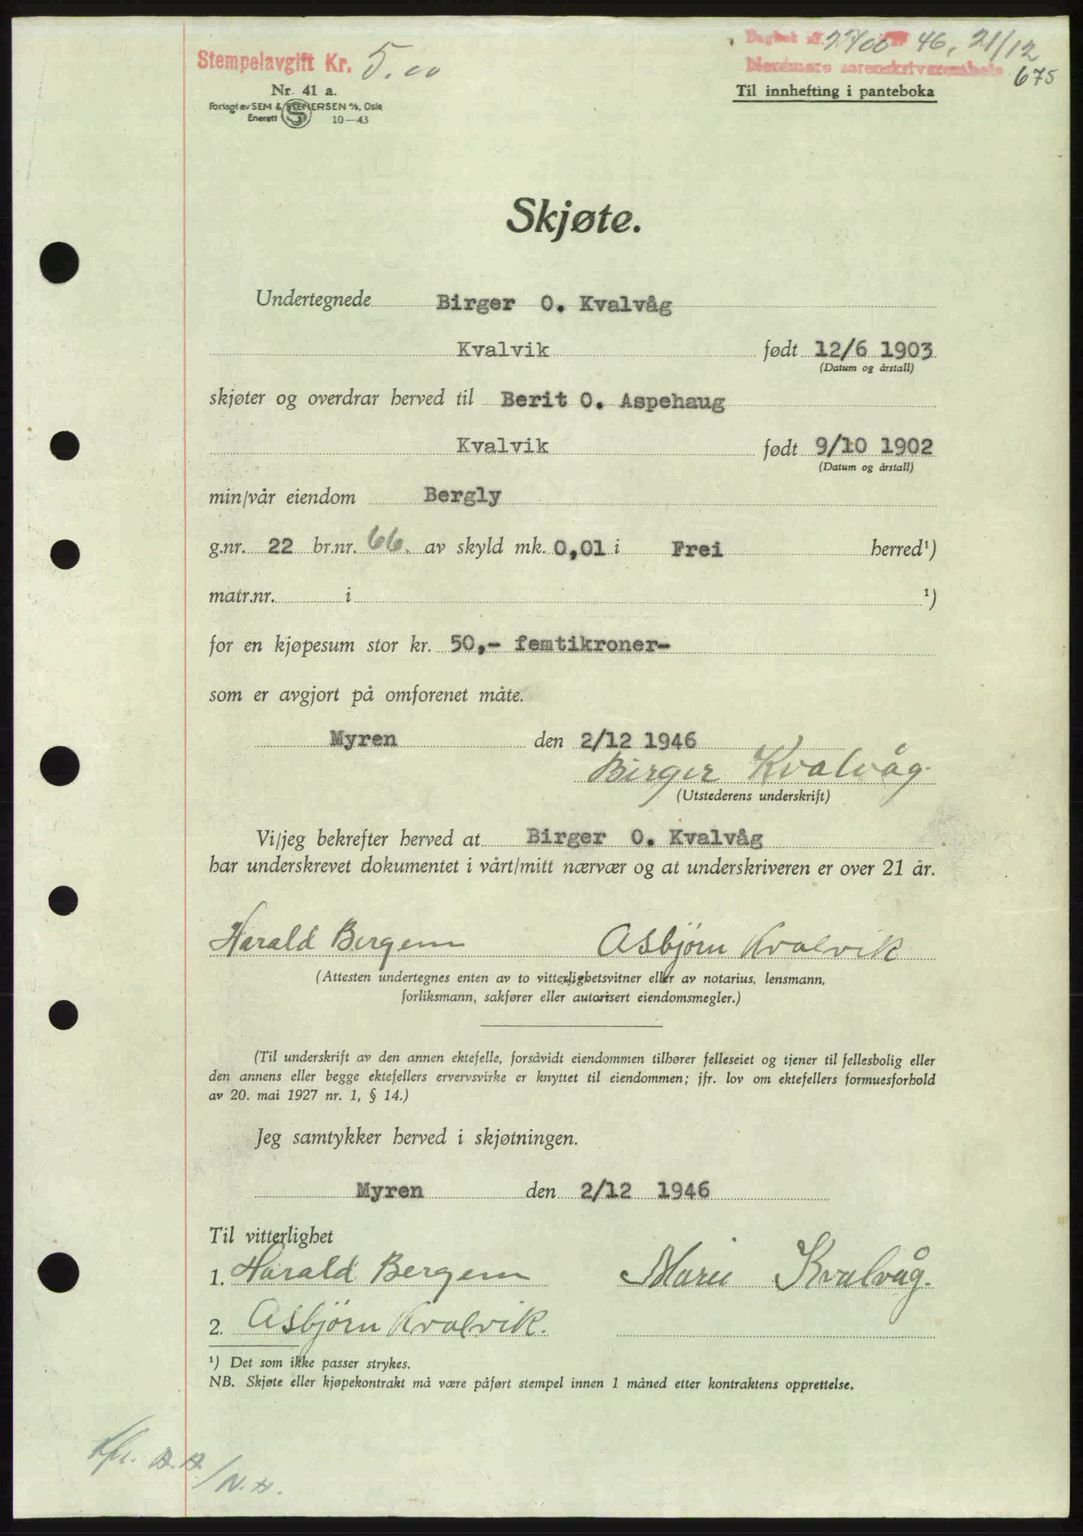 Stempelavgift Kr. 5.00
Nr. 41 a.
Forlagt av SEM & STENERSEN A/S, Oslo
Enerett 10—43
Dagbok nr. 2700 46, 21/12
Nordmøre sorenskriverembete 675
Til innhefting i panteboka
Skjøte.
Undertegnede Birger O. Kvalvåg
Kvalvik født 12/6 1903
(Datum og årstall)
skjøter og overdrar herved til Berit O. Aspehaug
Kvalvik født 9/10 1902
(Datum og årstall)
min/vår eiendom Bergly
g.nr. 22 br.nr. 66. av skyld mk. 0,01 i Frei herred¹)
matr.nr. i ¹)
for en kjøpesum stor kr. 50,- femtikroner-
som er avgjort på omforenet måte.
Myren den 2/12 1946
Birger Kvalvåg.
(Utstederens underskrift)
Vi/jeg bekrefter herved at Birger O. Kvalvåg
har underskrevet dokumentet i vårt/mitt nærvær og at underskriveren er over 21 år.
Harald Bergem Asbjørn Kvalvik
(Attesten undertegnes enten av to vitterlighetsvitner eller av notarius, lensmann,
forliksmann, sakfører eller autorisert eiendomsmegler.)
(Til underskrift av den annen ektefelle, forsåvidt eiendommen tilhører felleseiet og tjener til fellesbolig eller
den annens eller begge ektefellers ervervsvirke er knyttet til eiendommen; jfr. lov om ektefellers formuesforhold
av 20. mai 1927 nr. 1, § 14.)
Jeg samtykker herved i skjøtningen.
Myren den 2/12 1946
Til vitterlighet
1. Harald Bergem Marie Kvalvåg.
2. Asbjørn Kvalvik.
¹) Det som ikke passer strykes.
NB. Skjøte eller kjøpekontrakt må være påført stempel innen 1 måned etter kontraktens opprettelse.